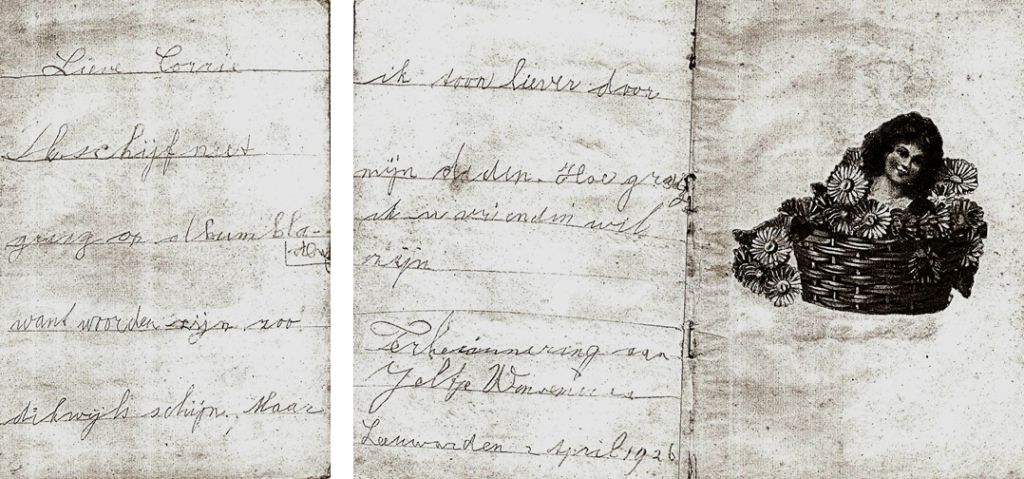 Lieve Corrie
Ik schijf niet
graag op album bla-
den
want woorden zijn zoo
dikwijls schijn. Maar
ik toon liever door
mijn daden. Hoe graag
ik u vriendin wil
mijn
Ter herinnering aan
Jeltje
Leeuwarden 2 April 1926